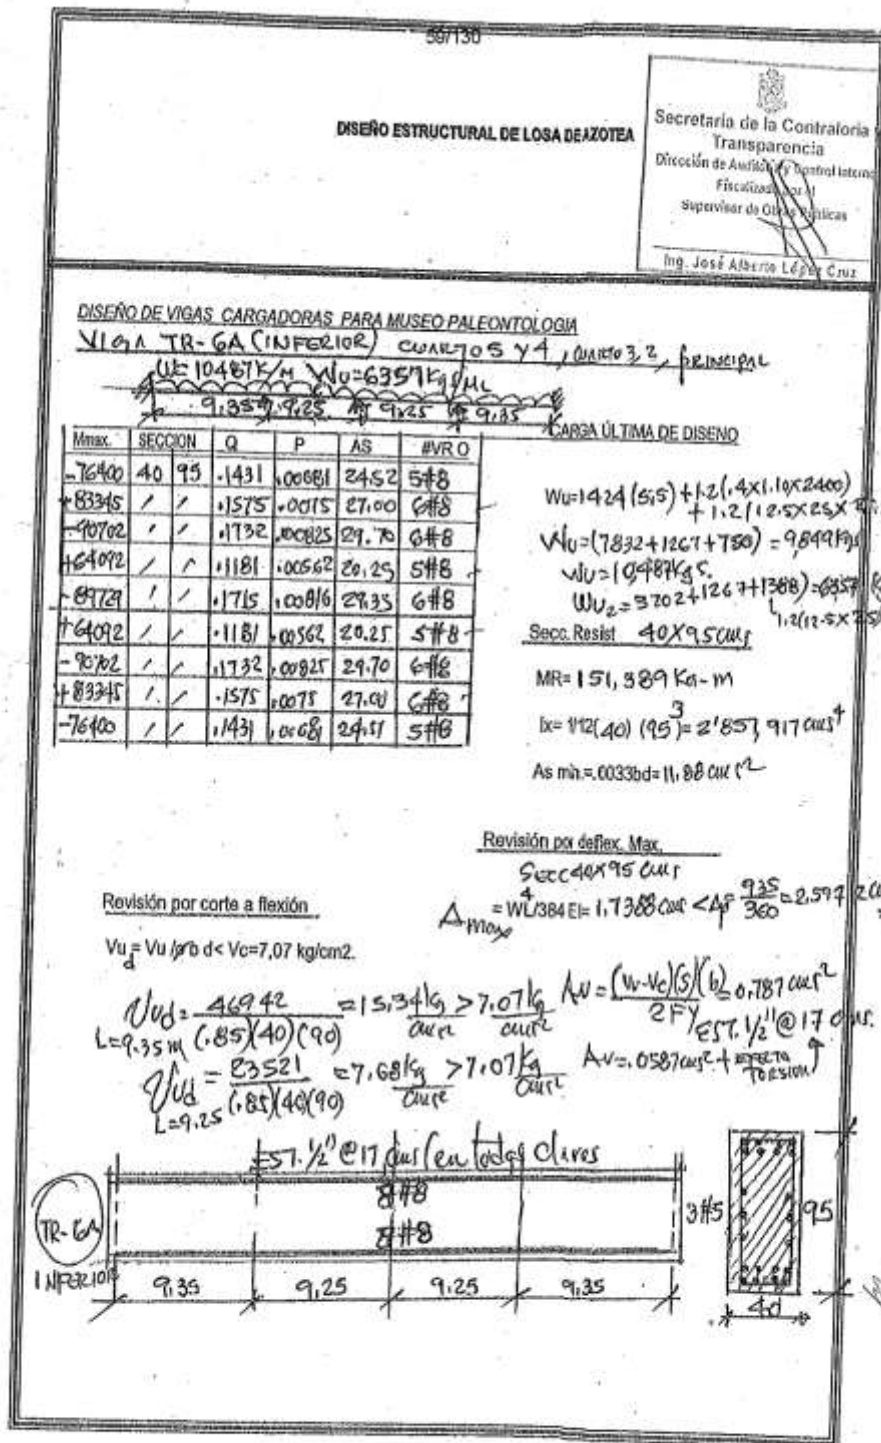 59/130
DISEÑO ESTRUCTURAL DE LOSA DE AZOTEA
Secretaría de la Contraloría
Transparencia
Dirección de Auditoría y Control Interno
Fiscalizado por el
Supervisor de Obras Públicas
Ing. José Alberto López Cruz
DISEÑO DE VIGAS CARGADORAS PARA MUSEO PALEONTOLOGIA
VIGA TR-6A (INFERIOR) CUARTO 5 Y 4, CUARTO 3, 2, PRINCIPAL
W=10487K/M WU=6357Kgs/ML
9.35 9.25 9.25 9.35
Mmax. SECCION Q P AS #VR O
-76400 40 95 .1431 .00681 24.52 5#8
+83345 / / .1575 .0075 27.00 6#8
-90702 / / .1732 .00825 29.70 6#8
+64092 / / .1181 .00562 20.25 5#8
-89729 / / .1715 .00816 29.35 6#8
+64092 / / .1181 .00562 20.25 5#8
-90702 / / .1732 .00825 29.70 6#8
+83345 / / .1575 .0075 27.00 6#8
-76400 / / .1431 .00681 24.51 5#8
CARGA ÚLTIMA DE DISENO
WU=1424(5.5)+1.2(.4x1.10x2400)
+1.2(12.5x25x
WU=(7832+1267+750)=9,849Kgs
WU=10,487Kgs.
WU2=3702+1267+1388)=6357
1.2(12.5x
Secc. Resist 40X95cms
MR=151,389 KG-m
Ix=1/12(40)(95)3=2'857,917cms4
As min.=.0033bd=11.88cms2
Revisión por deflex. Max.
SECC 40X95 cms
Δmax=WL4/384EI=1.7388cms<Δp=935/360=2.597
Revisión por corte a flexión
Vud=Vu/øb d< Vc=7,07 kg/cm2.
Vud=46942/(.85)(40)(90)=15.34kg/cms2>7.07kg/cms2 Av=(Vu-Vc)(S)(b)/2FY=0.787cms2
L=9.35m
EST.1/2"@17cms.
Vud=23521/(.85)(40)(90)=7.68kg/cms2>7.07kg/cms2 Av=.0587cms2+EFECTO TORSION
L=9.25
EST.1/2"@17cms(en todos claros
8#8
TR-6A
8#8
3#5
95
INFERIOR
9.35 9.25 9.25 9.35
40